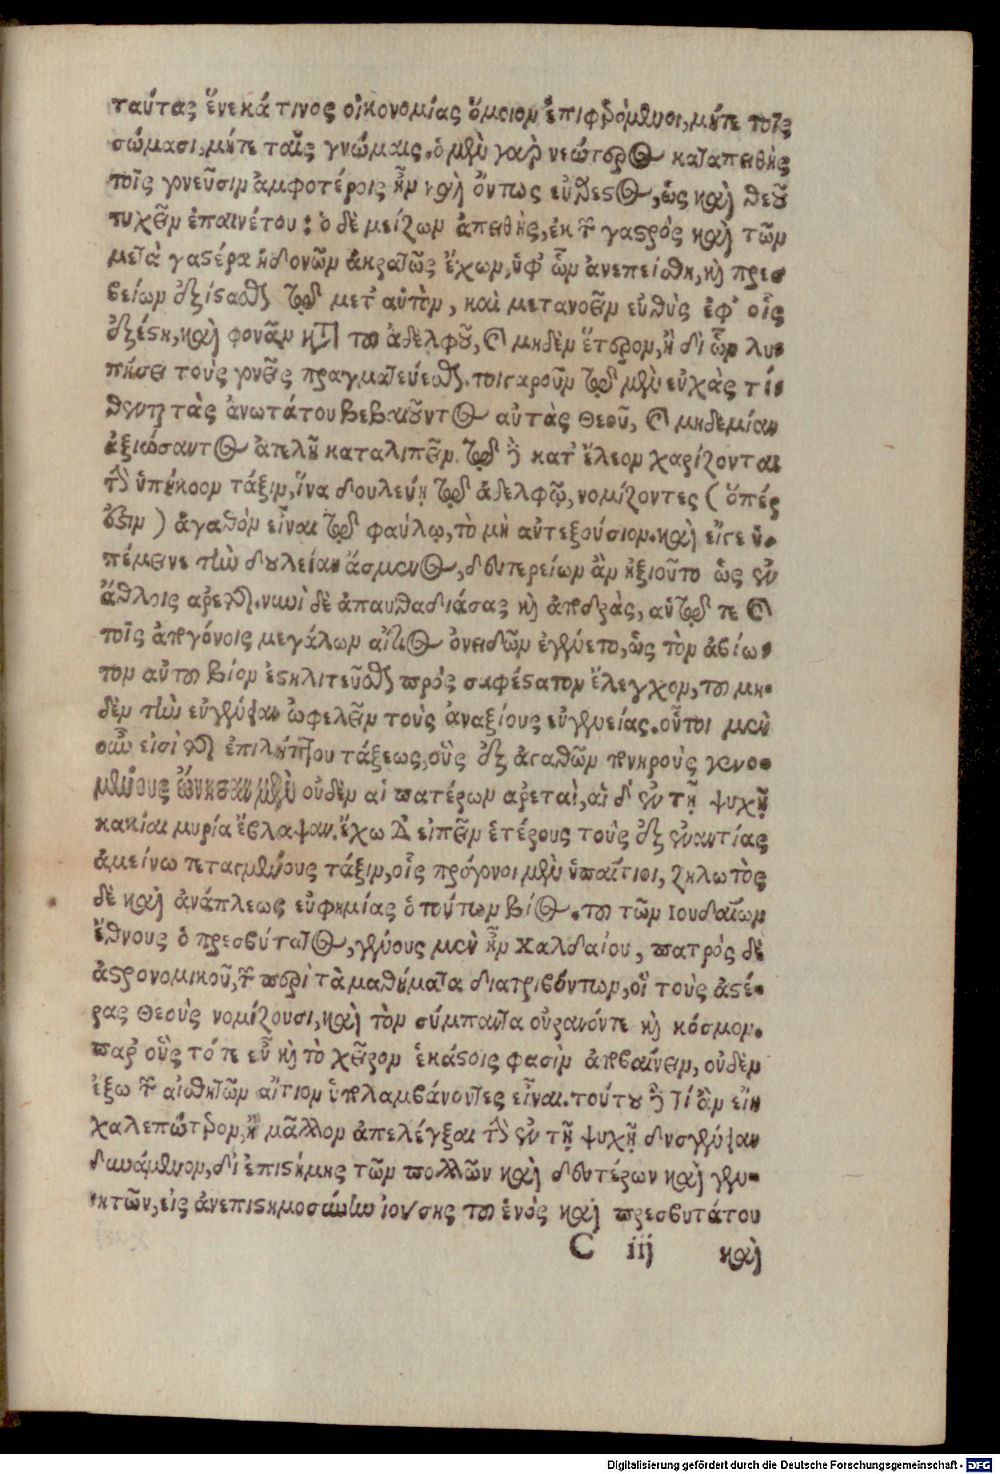 ταύτας ἕνεκά τινος οἰκονομίας ὅμοιον ἐπιφερόμενοι, μήτε τοῖς
σώμασι, μήτε ταῖς γνώμαις. ὁ μὲν γὰρ νεώτερος καταπειθὴς
τοῖς γονεῦσιν ἀμφοτέροις ἦν καὶ ὄντως εὐ, ὡς καὶ θεοῦ
τυχεῖν ἐπαινέτου: ὁ δὲ μείζων ἀπειθὴς, ἐκ τῶν γαστρὸς καὶ τῶν
μετὰ γαστέρα ἡδονῶν ἀκρατῶς ἔχων, ὑφ' ὧν ἀνεπείσθη, καὶ πρεσ-
βείων ἐξίστασθαι τῷ μετ' αὐτὸν, καὶ μετανοεῖν εὐθὺς ἐφ' οἷς
ἐξέστη, καὶ φονᾶν κατὰ τοῦ ἀδελφοῦ, καὶ μηδὲν ἕτερον, ἢ δι' ὧν λυ-
πήσει τοὺς γονεῖς πραγματεύεσθαι. τοιγαροῦν τῷ μὲν εὐχὰς τί-
θενται τὰς ἀνωτάτου βεβαιοῦντος αὐτὰς Θεοῦ, καὶ μηδεμίαν
ἀξιώσαντος ἀτελῆ καταλιπεῖν. τῷ δὲ κατ' ἔλεον χαρίζονται
τὴν ὑπήκοον τάξιν, ἵνα δουλεύῃ τῷ ἀδελφῷ, νομίζοντες (ὅπέρ
ἐστιν) ἀγαθὸν εἶναι τῷ φαύλῳ, τὸ μὴ αὐτεξούσιον. καὶ εἴγε ὑ-
πέμεινε τὴν δουλείαν ἄσμενος, δευτερείων ἂν ἠξιοῦτο ὡς ἐν
ἄθλοις ἀρετῆς. νυνὶ δὲ ἀπαυθαδιάσας καὶ ἀποδρὰς, αὑτῷ τε καὶ
τοῖς ἀπογόνοις μεγάλων αἴτιος ὀνειδῶν ἐγένετο, ὡς τὸν ἀβίω-
τον αὐτοῦ βίον ἐστηλιτεῦσθαι πρὸς σαφέστατον ἔλεγχον, τοῦ μη-
δὲν τὴν εὐγένειαν ὠφελεῖν τοὺς ἀναξίους εὐγενείας. οὗτοι μὲν
οὖν εἰσὶ τῆς ἐπιλήπτου τάξεως, οὓς ἐξ ἀγαθῶν πονηροὺς γενο-
μένους ὤνησαν μὲν οὐδὲν αἱ πατέρων ἀρεταὶ, αἱ δ' ἐν τῇ ψυχῇ
κακίαι μυρία ἔβλαψαν. ἔχω δ' εἰπεῖν ἑτέρους τοὺς ἐξ ἐναντίας
ἀμείνω τεταγμένους τάξιν, οἷς πρόγονοι μὲν ὑπαίτιοι, ζηλωτὸς
δὲ καὶ ἀνάπλεως εὐφημίας ὁ τούτων βίος. τοῦ τῶν Ιουδαίων
ἔθνους ὁ πρεσβύτατος, γένους μὲν ἦν Χαλδαίου, πατρὸς δὲ
ἀστρονομικοῦ, τῶν περὶ τὰ μαθήματα διατριβόντων, οἳ τοὺς ἀστέ-
ρας Θεοὺς νομίζουσι, καὶ τὸν σύμπαντα οὐρανόντε καὶ κόσμον.
παρ' οὓς τό τε εὖ καὶ τὸ χεῖρον ἑκάστοις φασὶν ἀποβαίνειν, οὐδὲν
ἔξω τῶν αἰσθητῶν αἴτιον ὑπολαμβάνοντες εἶναι. τούτου δὲ τί ἂν εἴη
χαλεπώτερον, ἢ μᾶλλον ἀπελέγξαι τὴν ἐν τῇ ψυχῇ δυσγένειαν
δυνάμενον, δι' ἐπιστήμης τῶν πολλῶν καὶ δευτέρων καὶ γεν-
νητῶν, εἰς ἀνεπιστημοσύνην ἰούσης τοῦ ἑνὸς καὶ πρεσβυτάτου
C iij καὶ
Digitalisierung gefördert durch die Deutsche Forschungsgemeinschaft - DFG